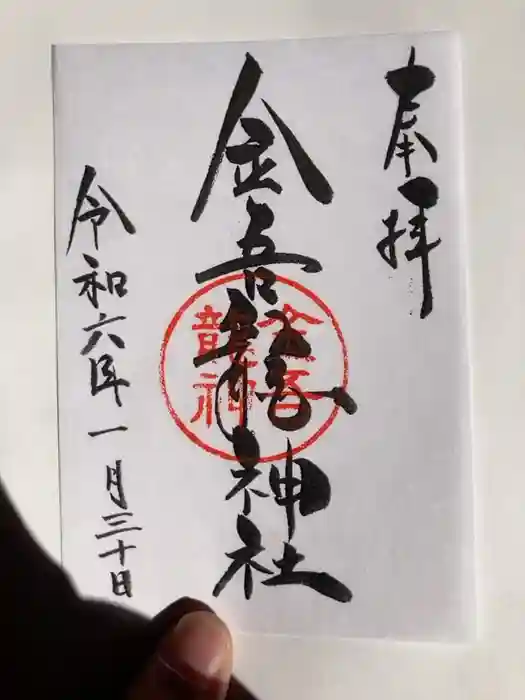 奉拝
金吾龍神社
金吾
龍神
令和六年一月三十日